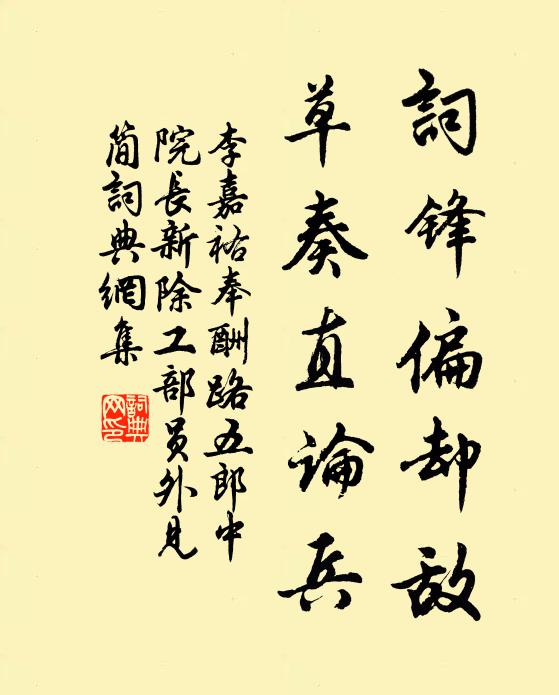 詞鋒偏却敌
草奏直論兵
李嘉祐奉酬路五郎中
院長新除工部員外見
简詞典網集
詞典网印